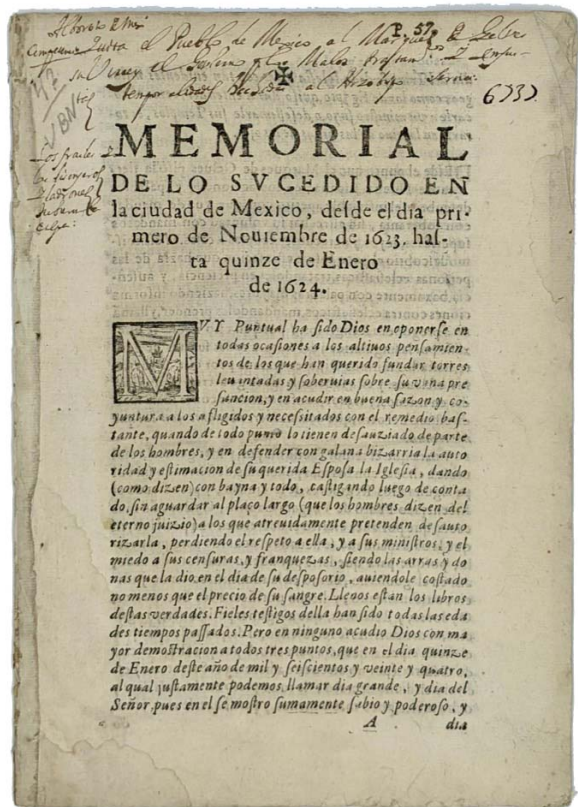 Alboroto 2 Mex
P. 57.
Quita el Pueblo de Mexico al Marques d Gelves
su Virrey el
al Arzobpo
6737
VBN
MEMORIAL
DE LO SVCEDIDO EN
la ciudad de Mexico, desde el dia pri-
mero de Nouiembre de 1623. has-
ta quinze de Enero
de 1624.
MVY Puntual ha sido Dios en oponerse en
todas ocasiones a los altiuos pensamien-
tos de los que han querido fundar torres
leuantadas y soberuias sobre su vana pre
suncion, y en acudir en buena sazon y co-
yuntura a los afligidos y necessitados con el remedio bas-
tante, quando de todo punto lo tienen desauziado de parte
de los hombres, y en defender con galana bizarria la auto
ridad y estimacion de su querida Esposa la Iglesia, dando
(como dizen) con bayna y todo, castigando luego de conta
do, sin aguardar al plaço largo (que los hombres dizen del
eterno juizio) a los que atreuidamente pretenden desauto
rizarla, perdiendo el respeto a ella, y a sus ministros, y el
miedo a sus censuras, y franquezas, siendo las arras y do
nas que la dio en el dia de su desposorio, auiendole costado
no menos que el precio de su sangre. Llenos estan los libros
destas verdades. Fieles testigos della han sido todas las eda
des tiempos passados. Pero en ninguno acudio Dios con ma
yor demostracion a todos tres puntos, que en el dia quinze
de Enero deste año de mil y seiscientos y veinte y quatro,
al qual justamente podemos llamar dia grande, y dia del
Señor, pues en el se mostro sumamente sabio y poderoso, y
A dia